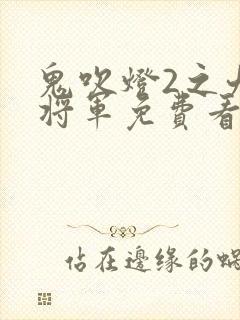 鬼吹燈2之
將軍免費看
佔在邊缘的蝸